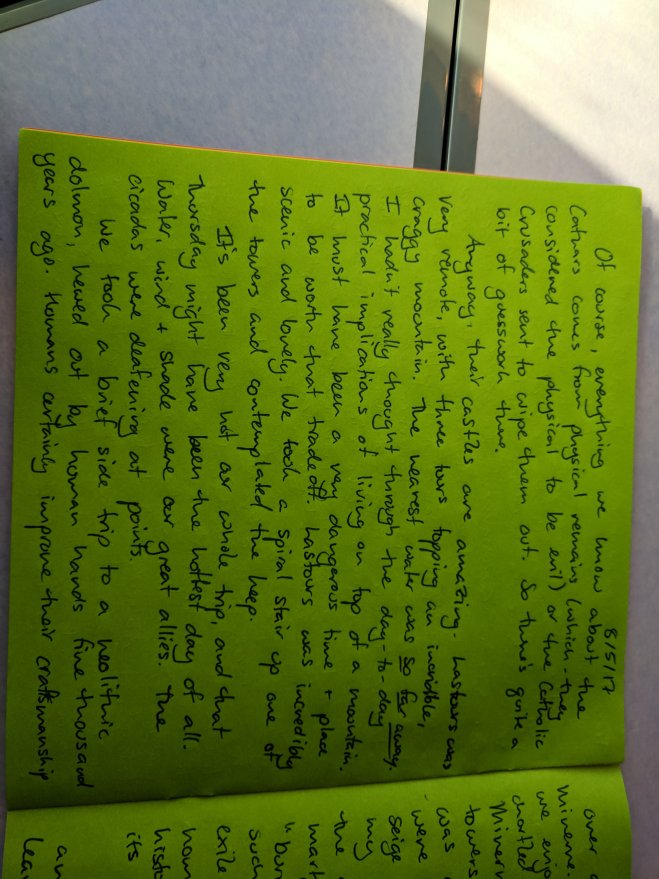 8/5/17
Of course, everything we know about the
Cathars comes from physical remains (which they
considered the physical to be evil) or the Catholic
Crusaders sent to wipe them out. So there's quite a
bit of guesswork there.
Anyway, their castles are amazing. Lastours was
very remote, with three tours topping an incredible,
craggy mountain. The nearest water was so far away.
I hadn't really thought through the day-to-day
practical implications of living on top of a mountain.
It must have been a very dangerous time + place
to be worth that tradeoff. Lastours was incredibly
scenic and lovely. We took a spiral stair up one of
the towers and contemplated the keep.
It's been very hot our whole trip, and that
Thursday might have been the hottest day of all.
Water, wind + shade were our great allies. The
cicadas were deafening at points.
We took a brief side trip to a neolithic
dolmen, hewed out by human hands five thousand
years ago. Humans certainly improve their craftsmanship
over
Minerve.
we enj
chortled
Minerv
towers
was
were
seige
my
the
mart
"bur
such
exile
hom
histo
its
an
lea